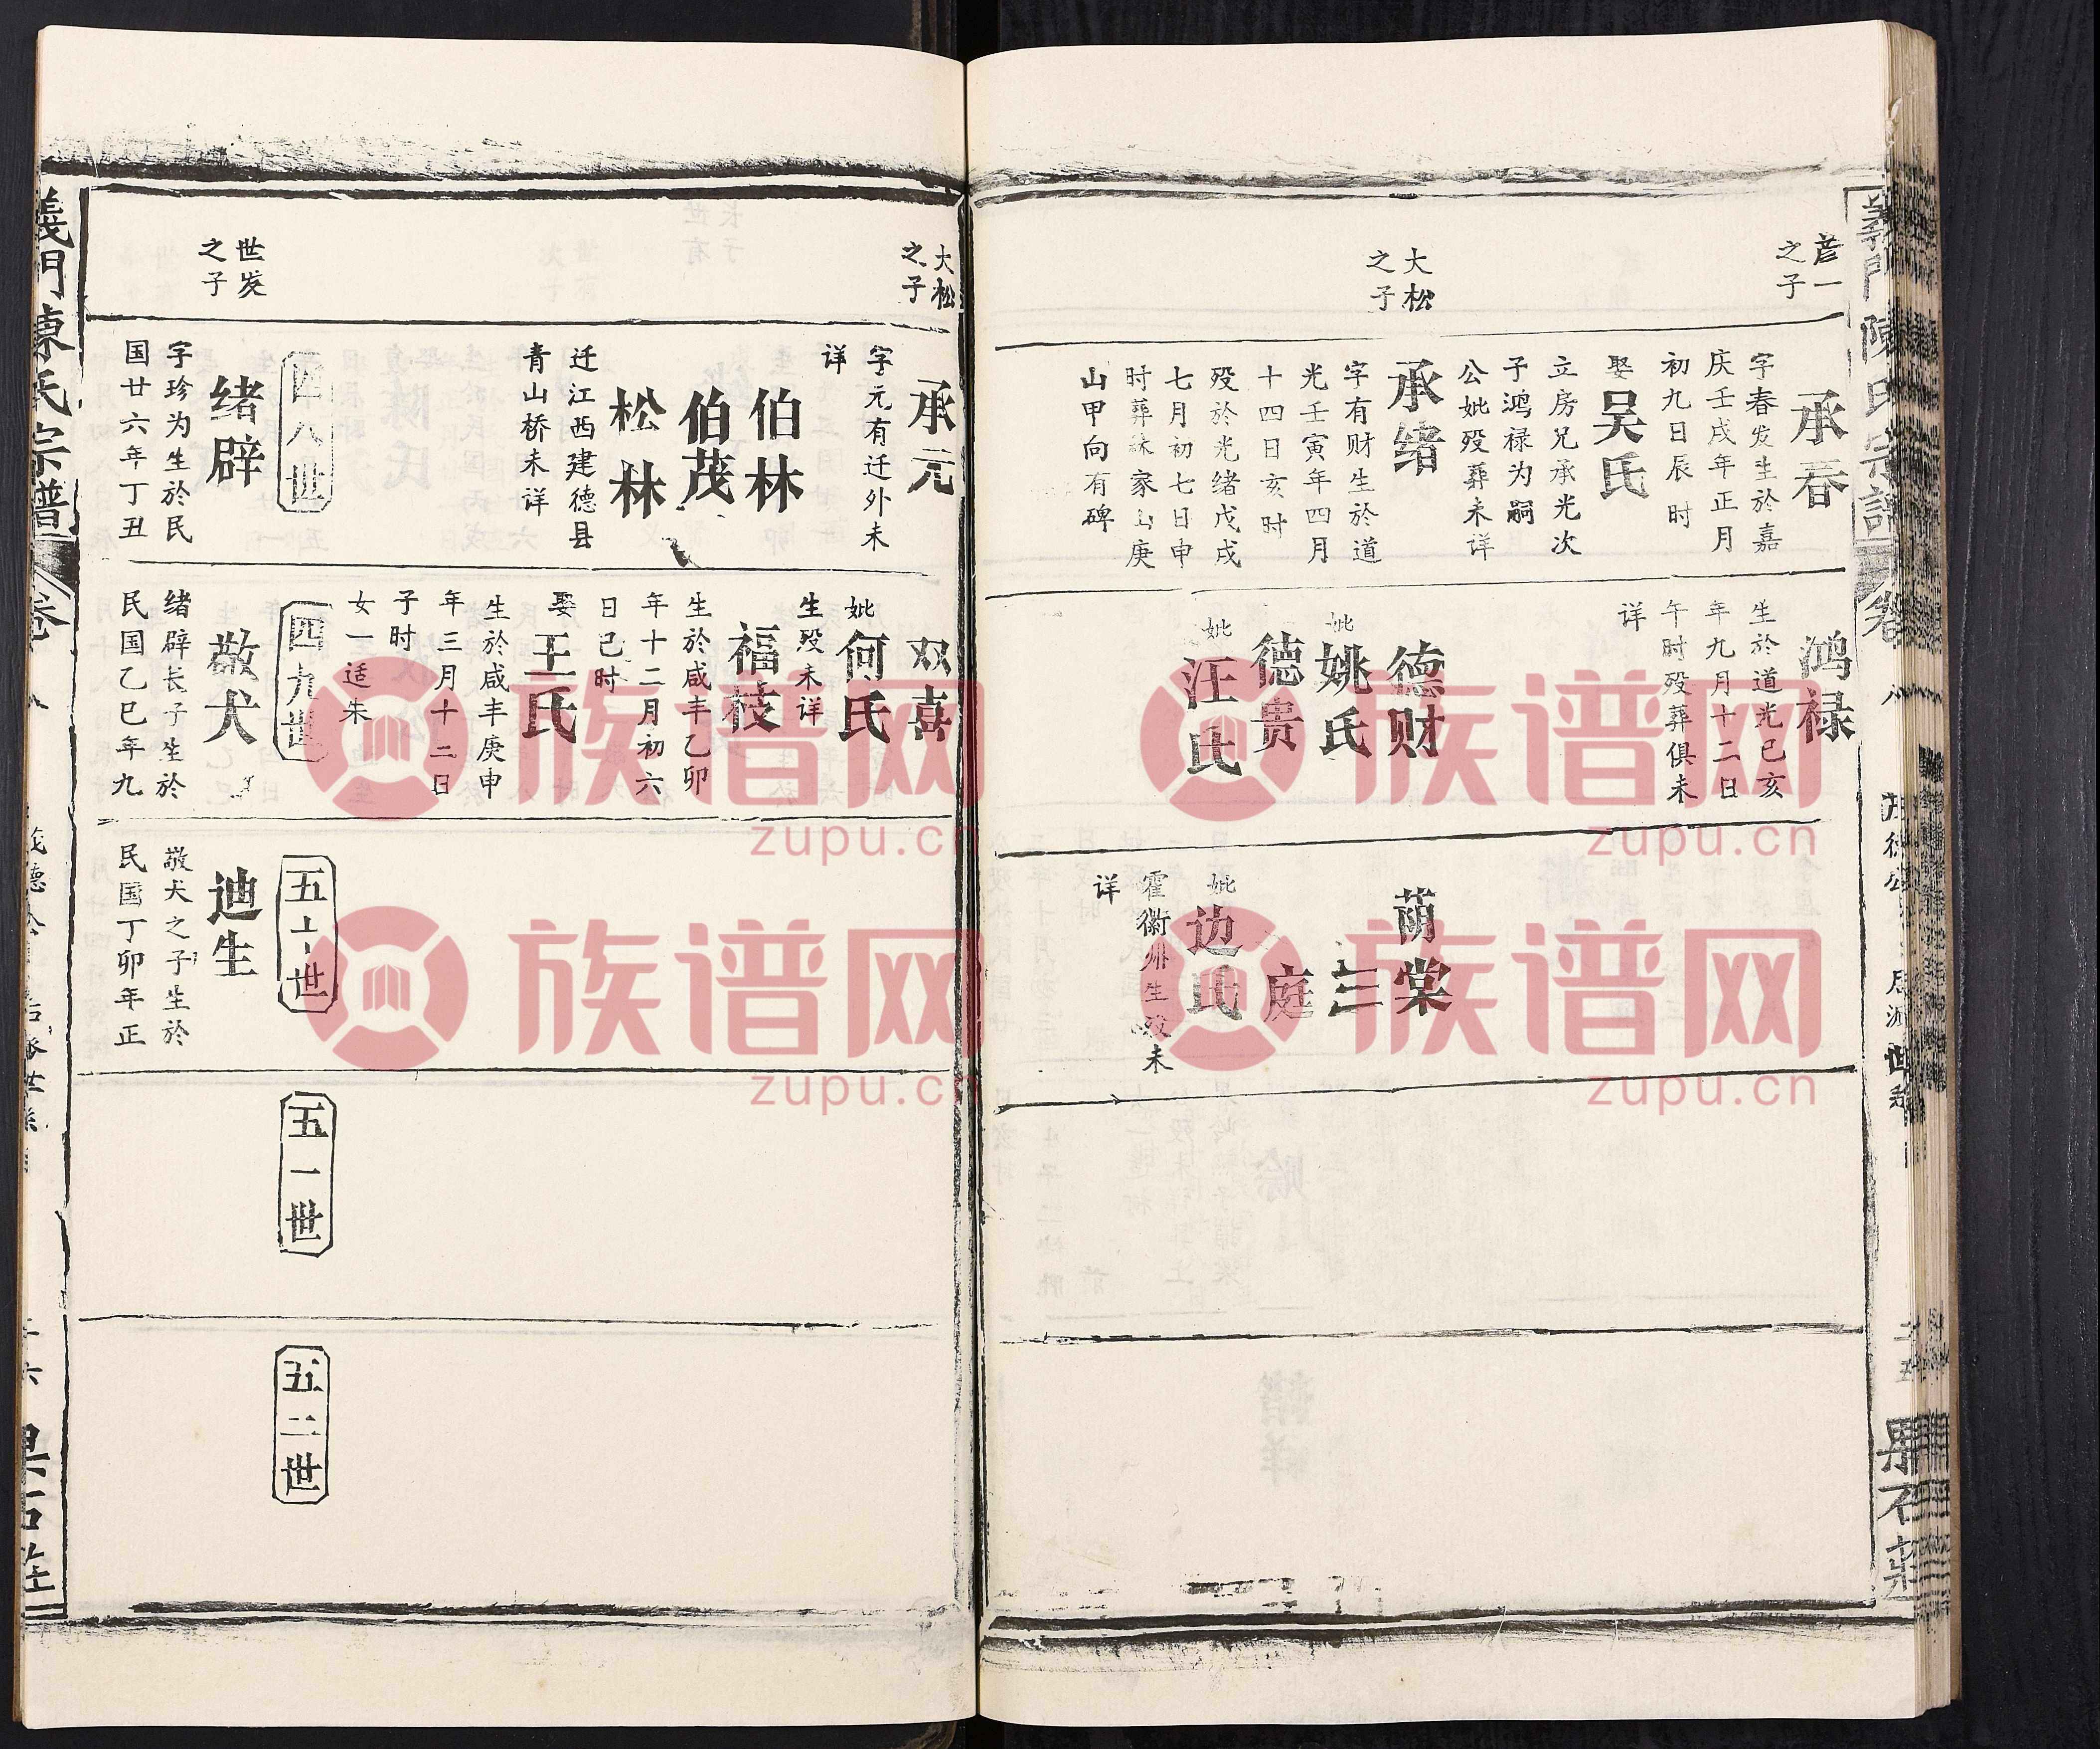 義門陳氏宗譜
卷八
彦一
之子
承春
字春发生於嘉
庆壬戌年正月
初九日辰时
娶
吴氏
立房兄承光次
子鸿禄为嗣
公妣殁葬未详
大松
之子
承绪
字有财生於道
光壬寅年四月
十四日亥时
殁於光绪戊戌
七月初七日申
山庚
山甲向有碑
鸿禄
生於道光己亥
年九月十二日
午时殁葬俱未
详
德财
妣
姚氏
德贵
妣
汪氏
荫棠
三
庭
妣
边氏
生殁未
详
大松
之子
承元
字元有迁外未
详
伯林
伯茂
松林
迁江西建德县
青山桥未详
四八世
世发
之子
绪辟
字珍为生於民
国廿六年丁丑
双喜
妣
何氏
生殁未详
福枝
生於咸丰乙卯
年十二月初六
日巳时
娶
王氏
生於咸丰庚申
年三月十二日
子时
女一适朱
四九世
敬犬
绪辟长子生於
民国乙巳年九
五十世
迪生
敬犬之子生於
民国丁卯年正
五一世
五二世
義門陳氏宗譜
卷八
果石莊
族谱网
zupu.cn
族谱网
zupu.cn
族谱网
zupu.cn
族谱网
zupu.cn